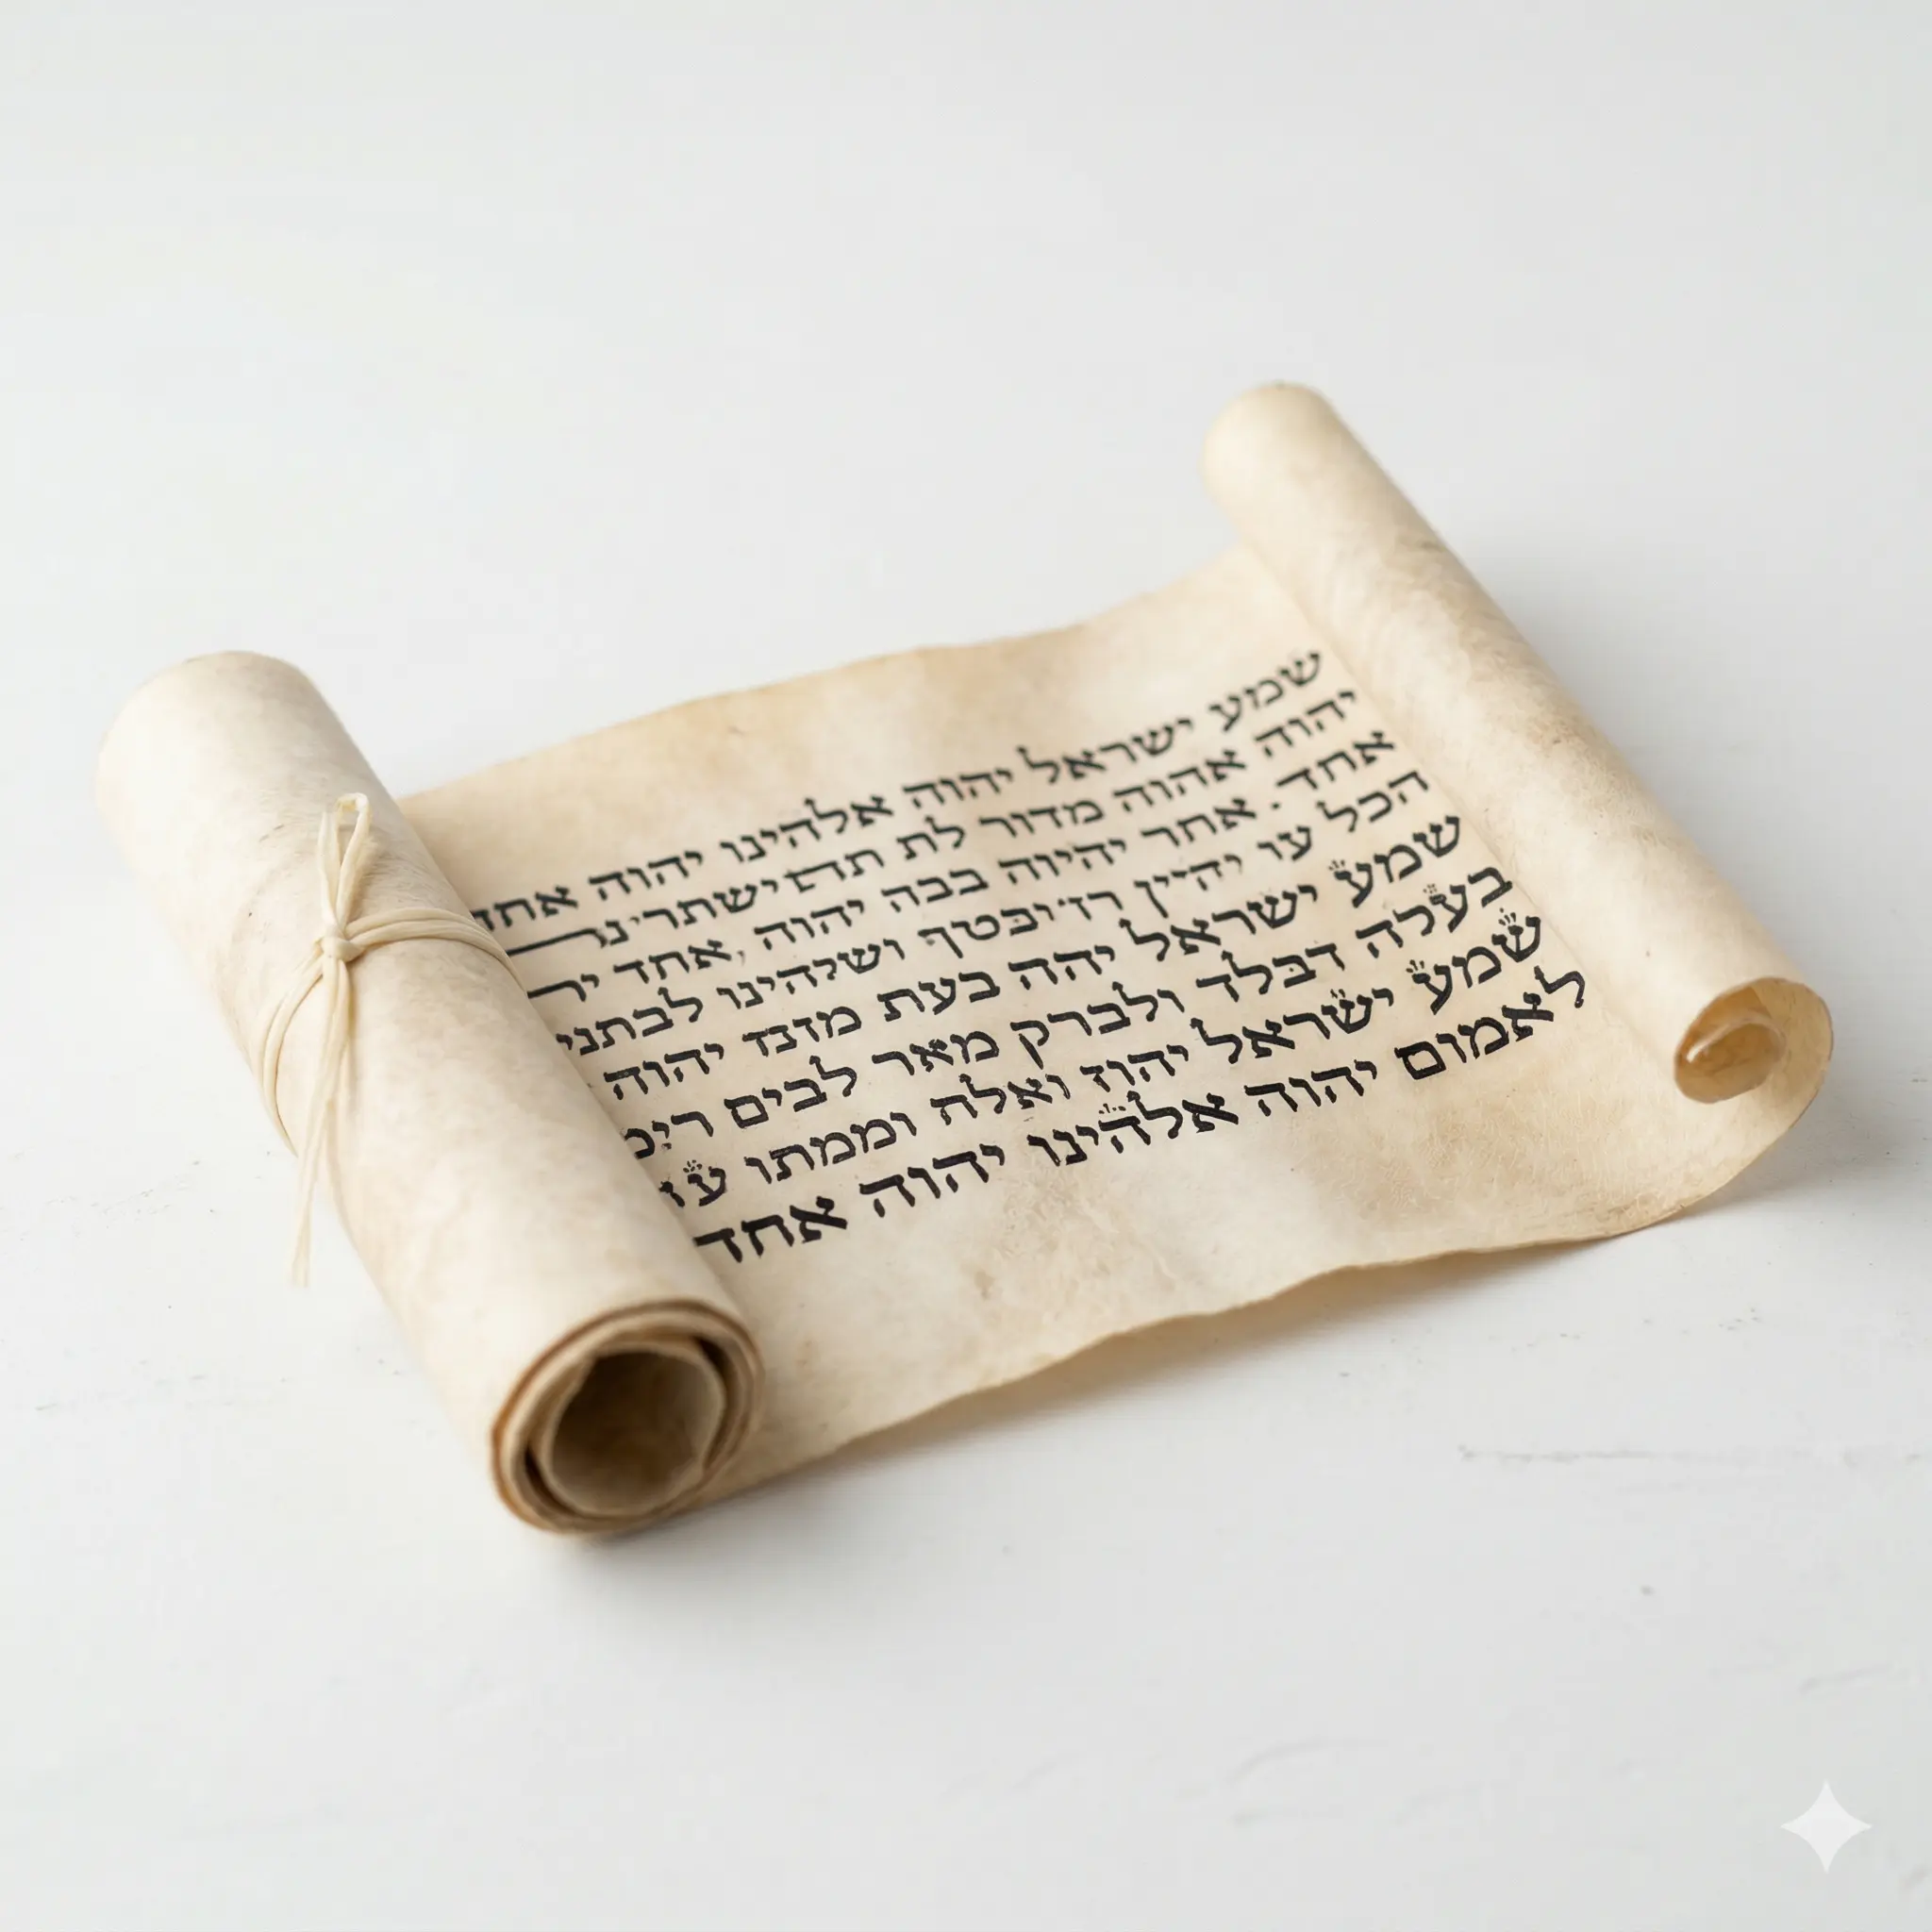 שמע ישראל יהוה אלהינו יהוה אחד
יהוה אהוה מדור לת
אחד. אחר יהיוה בכה יהוה אחד
הכל עו ושיהינו לבתני
שמע ישראל יהה בעת מזנד יהוה
בעלה דבלד ולברק מאר לבים
שמע ישראל יהוז ואלח וממתו
לאמום יהוה אלהינו יהוה אחד